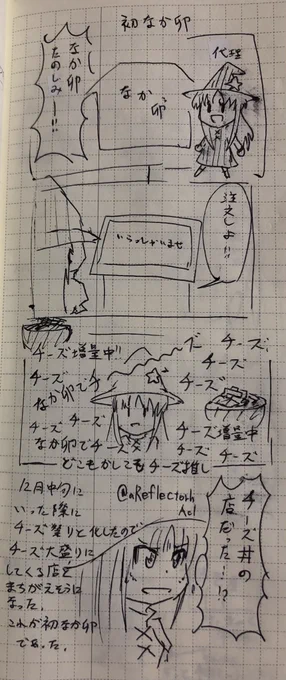 初なか卯
代理
なか卯
たのしみー!!
なか卯
注文しよ!!
いらっしゃいませ
チーズ増量中!!
チーズ
なか卯でチ
ーズ
チーズ
チーズ
チーズ
チーズ
チーズ
なか卯でチーズ
チーズ増量中
チーズ
チーズ
どこもかしてもチーズ推し
チーズ丼の
店だった!?
@aReflectoth
Ac1
12月中旬に
いった際に
チーズ祭りと化したので
チーズ大盛りに
してくる店と
まちがえそうに
なった。
これが初なか卯
であった。